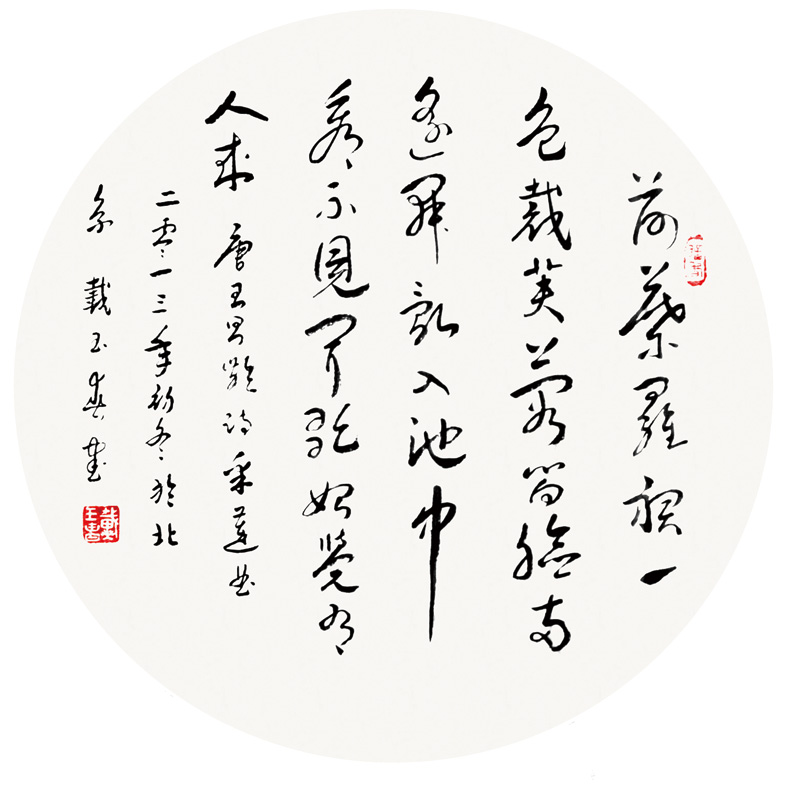 荷葉羅裙一
色裁芙蓉向臉兩
邊開亂入池中
看不見聞歌始覺有
人來 唐王昌齡詩采蓮曲
二零一三年初冬於北
京 戴玉春書